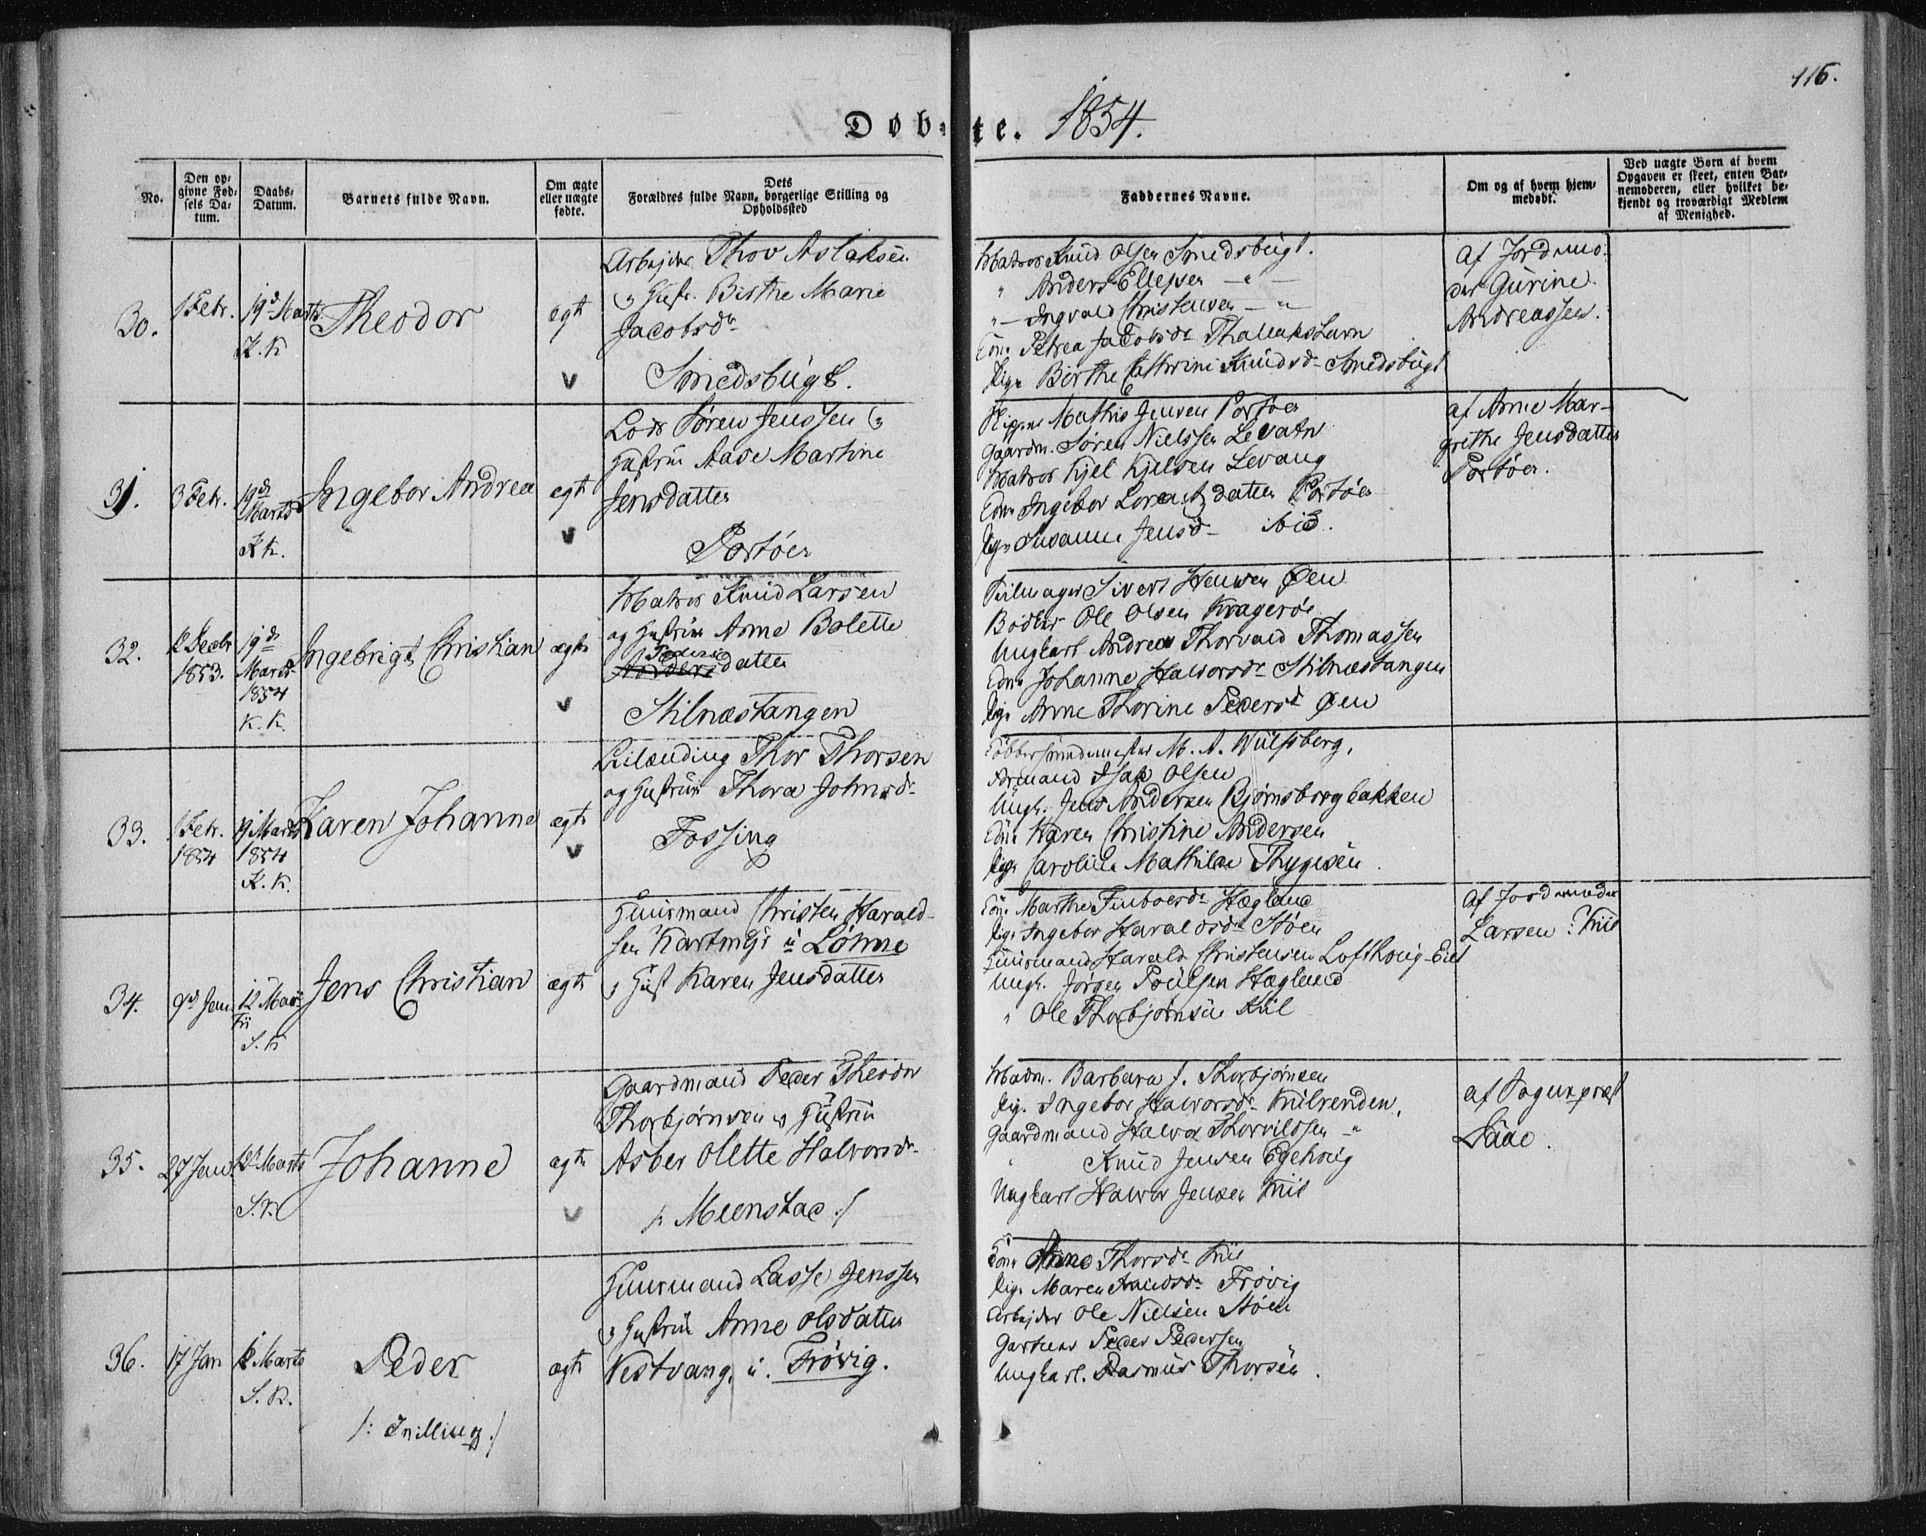 116.
Døbte. 1854.
No.
Den opgivne Fødsels Datum.
Daabs-Datum.
Barnets fulde Navn.
Om ægte eller uægte fødte.
Dets Forældres fulde Navn, borgerlige Stilling og Opholdssted
Faddernes Navne.
Om og af hvem hjemmedøbt.
Ved uægte Børn af hvem Opgaven er skeet, enten Barnemoderen, eller hvilket bekjendt og troværdigt Medlem af Menighed.
30.
1 Febr.
19d Marts
K. K
Theodor
ægt
Arbejder Thov Aslaksen
og Hustr. Birthe Marie
Jacobsdr
Smedsbugt.
Matros Knud Olsen Smedsbugt.
" Anders Ellefsen — " —
" — Ingvald Christensen — " —
Kone Petrea Jacobsdr Thallakshavn
Pige Birthe Cathrine Knudsdr Smedsbugt
af Jordmo-
der Gurine
Andreassen.
31.
3 Febr.
19de
Marts
K K.
Ingebor Andrea
ægt
Lods Søren Jenssen og
Hustrue Aase Martine
Jensdatter
Portøer
Skipper Mathis Jensen Portøer
Gaardm. Søren Nielssen Levatn
Matros Kjel Kjelsen Levang
Kone Ingebor Lorentzdatter Portøer
Pige Susanne Jensd— ibid.
af Anne Mar-
grethe Jensdatter
Portøer.
32.
12 Decbr
1853.
19de
Marts
1854
K. K.
Ingebrigt Christian
ægte
Matros Knud Larsen
og Hustrue Anne Bolette
Peders
Anders datter
Stilnæstangen
Sivert Hansen Øen
Bødker Ole Olsen Kragerøe
Ungkarl Andreas Thorvald Thomassen
Kone Johanne Halvorsdr Stilnæstangen
Pige Anne Thorine Pedersd Øen
33.
1 Febr.
1854
19 Marts
1854
K. K.
Karen Johanne
ægte
Leilænding Thor Thorsen
og Hustrue Thora Johnsdr
Fossing
Kobbersmedmester M. A. Wulfsberg,
Formand Isak Olsen
Ungk. Jens Andersen Bjørnsborgbakken
Kone Karen Christine Andersen
Pige Caroline Mathilde Thygesen.
34.
9de Jan.
12 Mar-
ts
S. K
Jens Christian
ægte
Huusmand Christen Harald-
sen Kartmyr u Løhne
og Hust Karen Jensdatter
Kone Marthe Finboesdr Hæglund
Pige Ingebor Haraldsdr Støen
Huusmand Harald Christensen Lofthoug-Eiet
Ungk. Jørgen Poulsen Hæglund
" Ole Thorbjørnsen Kiil
af Jordemoder
Larsen ? Kiil
35.
27 Jan.
12 Marts
S. K
Johanne
ægte
Gaardmand Peder Theodor
Thorbjørnsen og Hustrue
Asber Olette Halvorsdr
/: Meenstad :/
Madm. Barbara J. Thorbjørnsen
Pig. Ingebor Halvorsdr Kiilrenden,
Gaardmand Halvor Thorvildsen — "
" Knud Jensen Egehoug
Ungkarl Halvor Jensen Kiil
af Sogneprest
Daae.
36.
17 Jan
12 Marts
S. K.
Peder
/: Tvilling :/
ægte
Huusmand Lasse Jenssen
og Hustrue Anne Olsdatter
Vestvang, u. Frøvig.
Kone Anne Thorsdr Kiil
Pige Maren Amundsdr Frøvig
Arbejder Ole Nielsen Støen
Gartner Peder Pedersen
Ungkarl. Rasmus Thorsen.